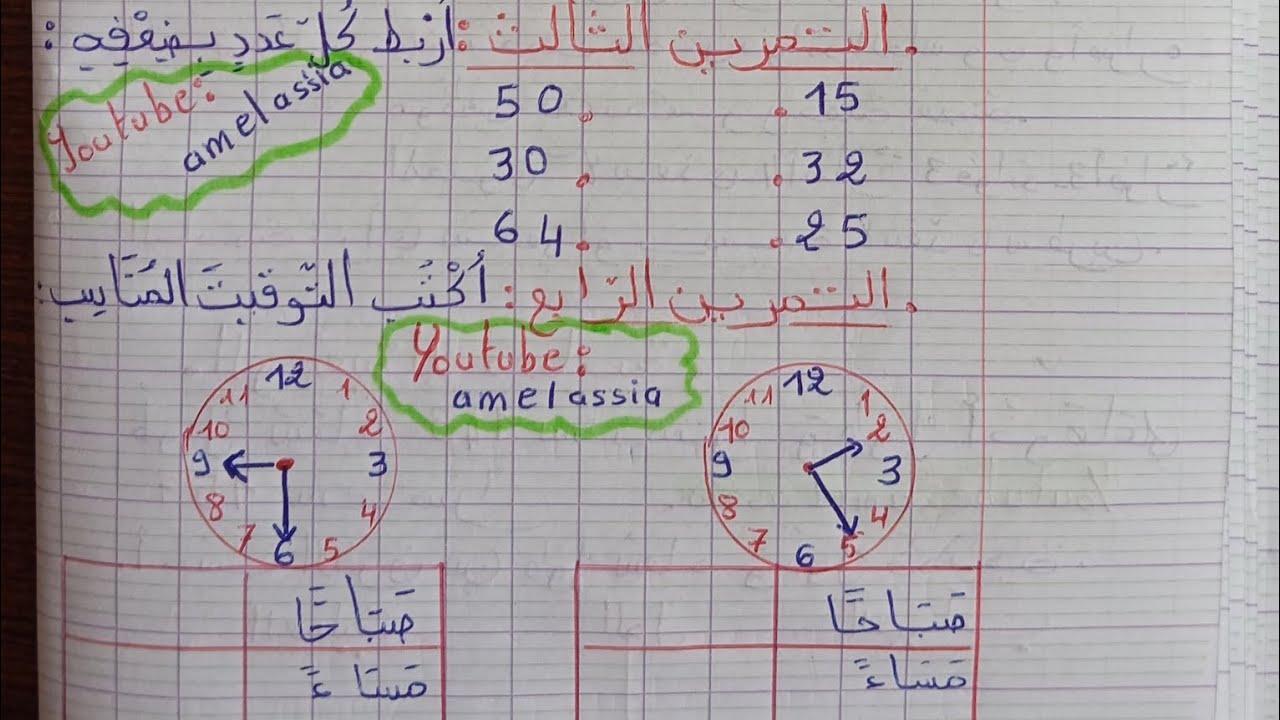 . التمرين الثالث : أَرْبِطُ كُلَّ عَدَدٍ بِضِعْفِهِ :
Youtube:
amelassia
15 . . 50
32 . . 30
25 . . 64
. التمرين الرّابع : أَكْتُبُ التَّوْقِيتَ المُنَاسِبَ :
Youtube:
amelassia
12
11 1
10 2
9 3
8 4
7 5
6
12
11 1
10 2
9 3
8 4
7 5
6
صَبَاحًا
مَسَاءً
صَبَاحًا
مَسَاءً